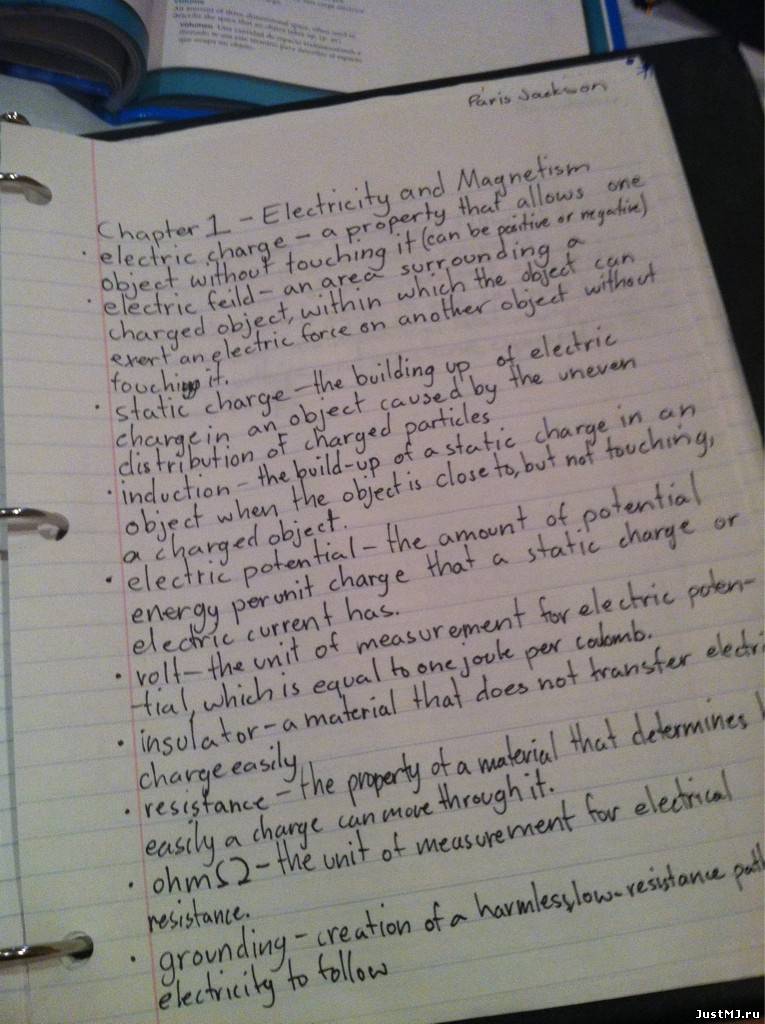 volume
An amount of three-dimensional space, often used to
describe the space that an object takes up. (p. 407)
volumen Una cantidad de espacio tridimensional; a
menudo se usa este término para describir el espacio
que ocupa un objeto.
Paris Jackson
Chapter 1 - Electricity and Magnetism
• electric charge - a property that allows one
object without touching it (can be positive or negative)
• electric feild - an area surrounding a
charged object, within which the object can
exert an electric force on another object without
touching it.
• static charge - the building up of electric
charge in an object caused by the uneven
distribution of charged particles
• induction - the build-up of a static charge in an
object when the object is close to, but not touching,
a charged object.
• electric potential - the amount of potential
energy per unit charge that a static charge or
electric current has.
• volt - the unit of measurement for electric poten-
tial, which is equal to one joule per coulomb.
• insulator - a material that does not transfer electri
charge easily
• resistance - the property of a material that determines h
easily a charge can move through it.
• ohms Ω - the unit of measurement for electrical
resistance.
• grounding - creation of a harmless, low-resistance path
electricity to follow
JustMJ.ru